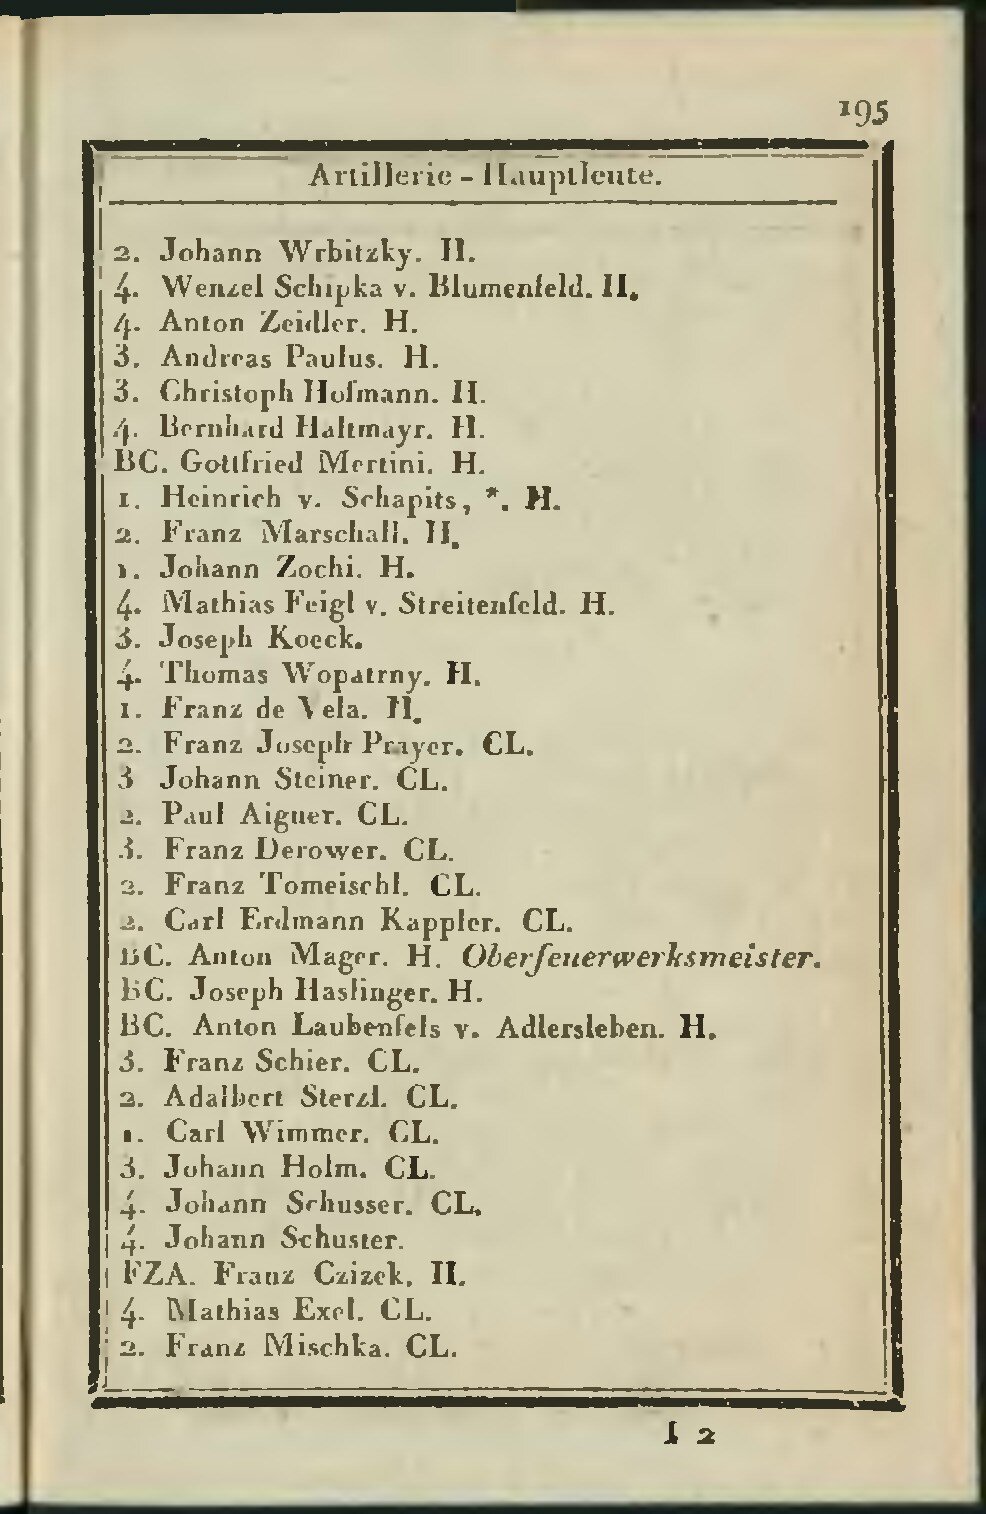 195
Artillerie-Hauptleute.
2. Johann Wrbitzky. H.
4. Wenzel Schipka v. Blumenfeld. H.
4. Anton Zeidler. H.
3. Andreas Paulus. H.
3. Christoph Hofmann. H.
4. Bernhard Haltmayr. H.
BC. Gottfried Mertini. H.
1. Heinrich v. Schapits, *. H.
2. Franz Marschall. H.
1. Johann Zochi. H.
4. Mathias Feigl v. Streitenfeld. H.
3. Joseph Koeck.
4. Thomas Wopatrny. H.
1. Franz de Vela. H.
2. Franz Joseph Prayer. CL.
3 Johann Steiner. CL.
2. Paul Aigner. CL.
3. Franz Derower. CL.
2. Franz Tomeischl. CL.
2. Carl Erdmann Kappler. CL.
BC. Anton Mager. H. Oberfeuerwerksmeister.
BC. Joseph Haslinger. H.
BC. Anton Laubenfels v. Adlersleben. H.
3. Franz Schier. CL.
2. Adalbert Sterzl. CL.
1. Carl Wimmer. CL.
3. Johann Holm. CL.
4. Johann Schusser. CL.
4. Johann Schuster.
FZA. Franz Czizek. H.
4. Mathias Exel. CL.
2. Franz Mischka. CL.
I 2